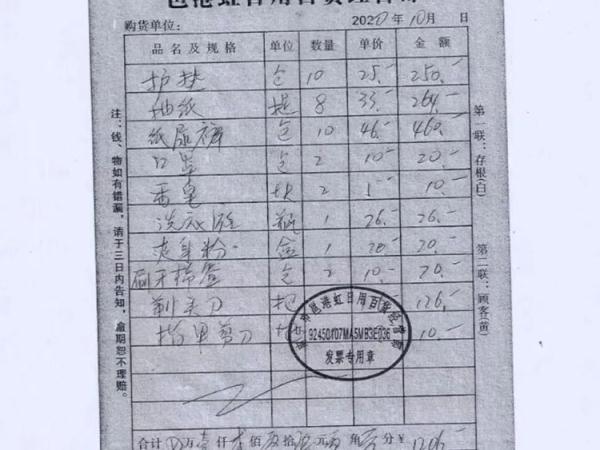 邑港虹日用百货经营部
购货单位： 2020年10月 日
品名及规格 单位 数量 单价 金额
护垫 包 10 25.- 250.-
抽纸 提 8 33.- 264.-
纸尿裤 包 10 46.- 460.-
口罩 包 2 10.- 20.-
香皂 块 2 10.-
洗衣液 瓶 1 26.- 26.-
爽身粉 盒 1 20.- 20.-
刷牙棉签 包 2 10.- 20.-
剃头刀 把 126.-
指甲剪刀 10.-
合计 万壹仟贰佰 拾 元 角 分 ¥ 1206.-
注：钱、物如有错漏，请于三日内告知，逾期恕不理赔。
第一联：存根(白)
第二联：顾客(黄)
市邑港虹日用百货经营部
92450107MA5MB3E036
发票专用章